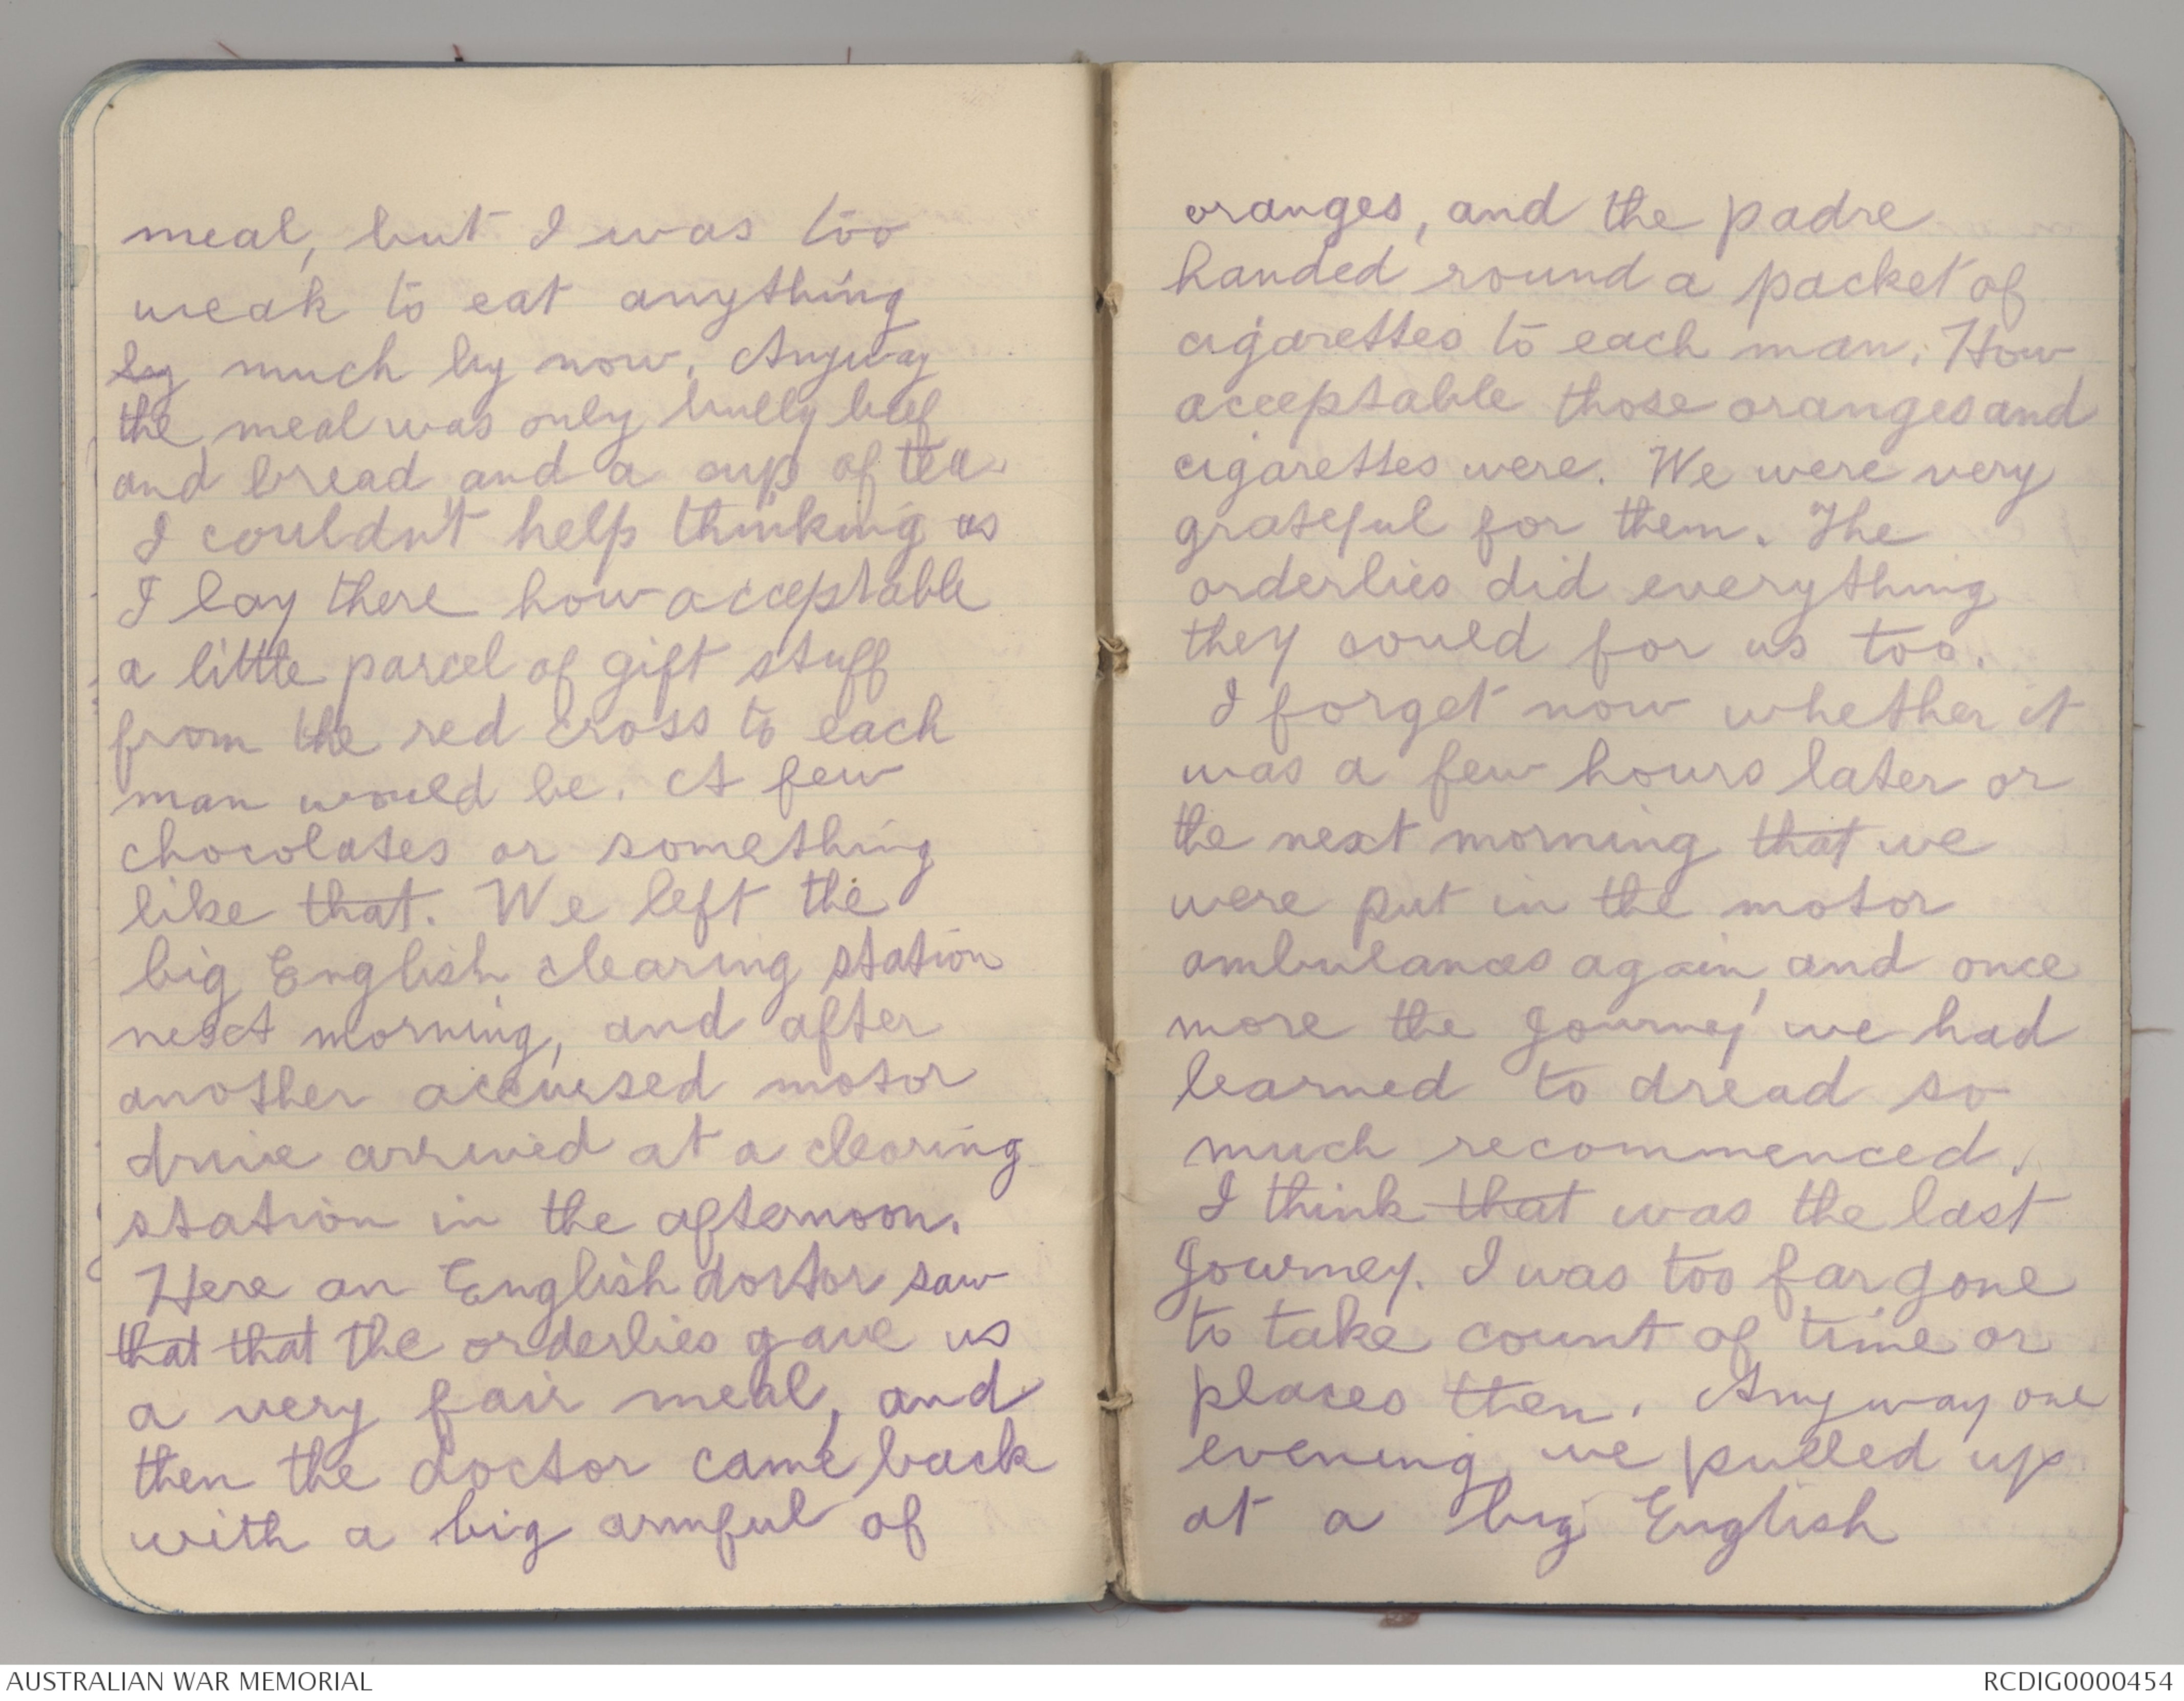 meal, but I was too
weak to eat anything
by much by now. Anyway
the meal was only bully beef
and bread and a cup of tea.
I couldn't help thinking as
I lay there how acceptable
a little parcel of gift stuff
from the red cross to each
man would be. A few
chocolates or something
like that. We left the
big English clearing station
next morning, and after
another accursed motor
drive arrived at a clearing
station in the afternoon.
Here an English doctor saw
that that the orderlies gave us
a very fair meal, and
then the doctor came back
with a big armful of
oranges, and the padre
handed round a packet of
cigarettes to each man. How
acceptable those oranges and
cigarettes were. We were very
grateful for them. The
orderlies did everything
they sould for us too.
I forget now whether it
was a few hours later or
the next morning that we
were put in the motor
ambulances again, and once
more the journey we had
learned to dread so
much recommenced.
I think that was the last
journey. I was too far gone
to take count of time or
places then. Anyway one
evening, we pulled up
at a big English
AUSTRALIAN WAR MEMORIAL
RCDIG0000454